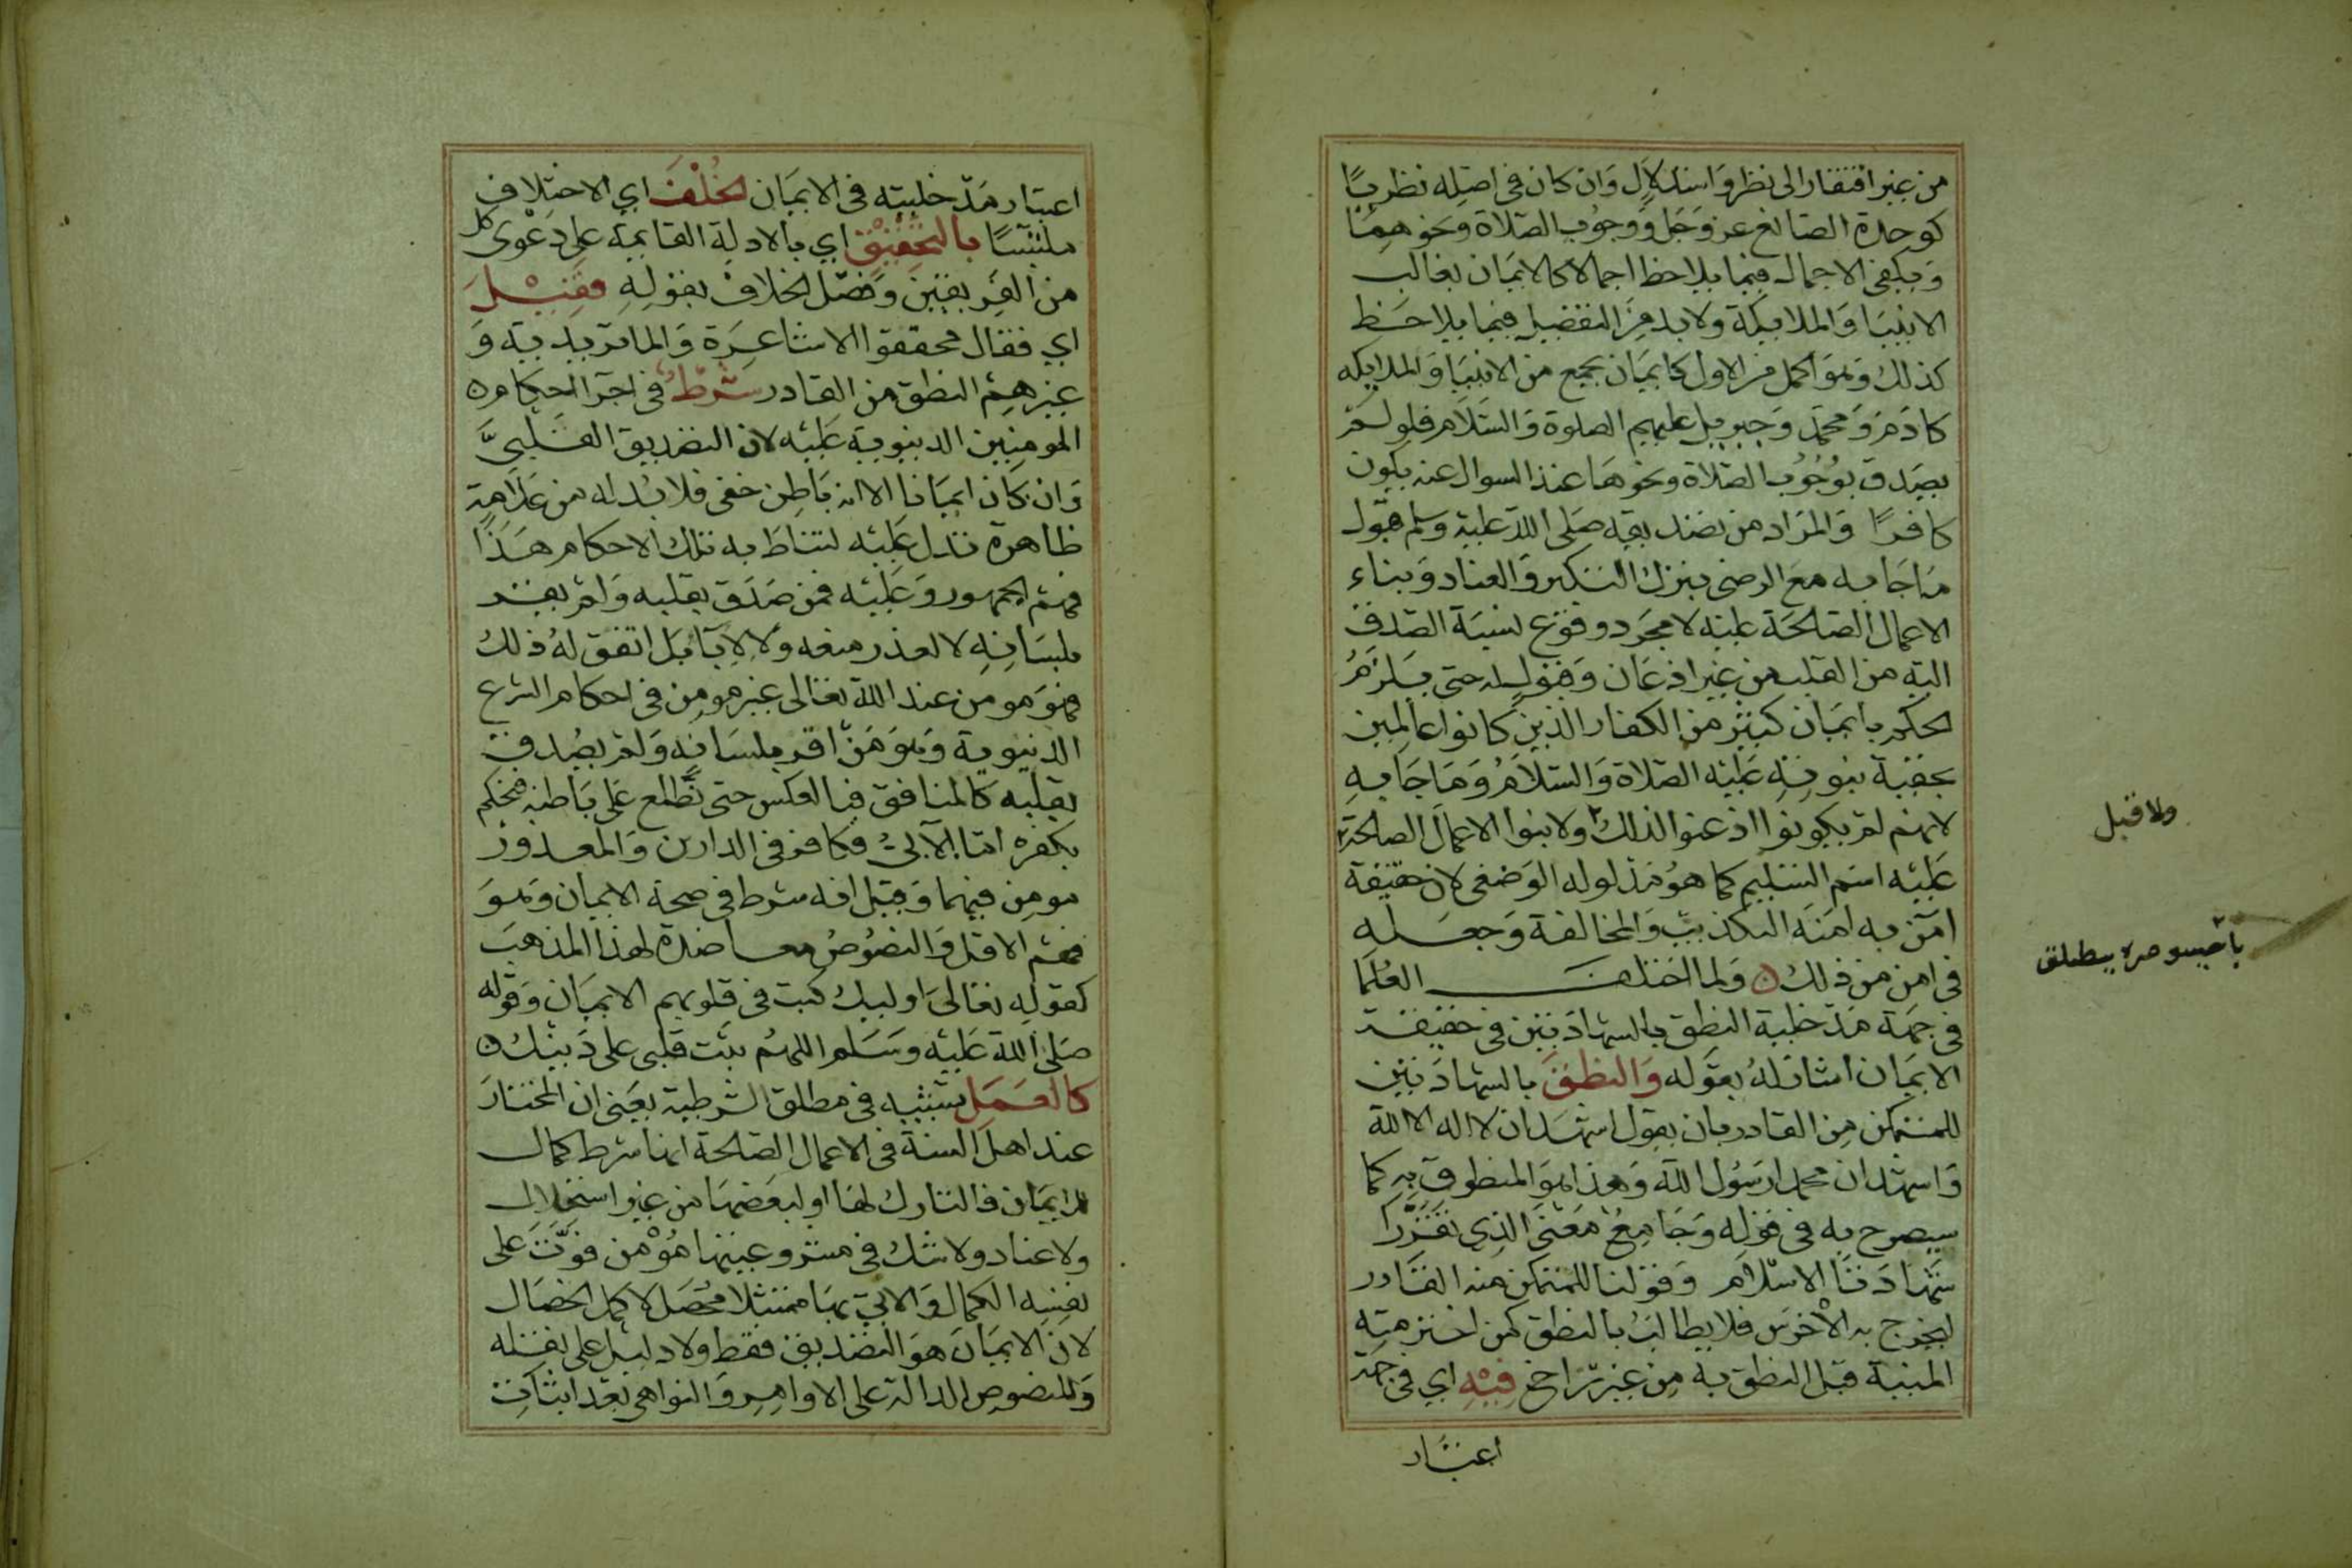 من غير افتقار الى نظر واستدلال وان كان في اصله نظريا
كوحدة الصانع عز وجل ووجوب الصلاة ونحوهما
ويكفي الاجمال فيما يلاحظ اجمالا كالايمان بغالب
الانبيا والملايكة ولا بد من التفصيل فيما يلاحظ
كذلك وهو اكمل من الاول كايمان بجمع من الانبيا والملايكه
كادم ومحمد وجبريل عليهم الصلوة والسلام فلو لم
يصدق بوجوب الصلاة ونحوها عند السوال عنه يكون
كافرا والمراد من تصديقه صلى الله عليه وسلم قبول
ما جا به مع الرضى بترك التكبر والعناد وبناء
الاعمال الصالحة عليه لا مجرد وقوع نسبة الصدق
اليه من القلب من غير اذعان وقبول له حتى يلزم
الحكم بايمان كثير من الكفار الذين كانوا عالمين
بحقية نبوته عليه الصلاة والسلام وما جا به
لانهم لم يكونوا اذعنوا لذلك ولا بنوا الاعمال الصالحة
ولا قبل
عليه اسم التسليم كما هو مدلوله الوضعي لان حقيقة
امن به امنه التكذيب والمخالفة وجعله
في امن من ذلك ولما اختلف العلما
في جهة مدخلية النطق بالشهادتين في حقيقة
الايمان اشار له بقوله والنطق بالشهادتين
للمتمكن من القادر بان يقول اشهد ان لا اله الا الله
واشهد ان محمدا رسول الله وهذا هو المنطوق به كما
سيصرح به في قوله وجامع معنى الذي تقررا
شهادتا الاسلام وقولنا للمتمكن منه القادر
ليخرج به الاخرس فلا يطالب بالنطق كمن اخترمته
المنية قبل النطق به من غير تراخ فيه اي في جهة
اعتبار
اعتبار مدخليته في الايمان الخلف اي الاختلاف
ملتبسا بالتحقيق اي بالادلة القايمة على دعوى كل
من الفريقين وفصل الخلاف بقوله فقيل
اي فقال محققوا الاشاعرة والماتريدية و
غيرهم النطق من القادر شرط في اجرا احكام
المومنين الدنيوية عليه لان التصديق القلبي
وان كان ايمانا الا انه باطن خفي فلا بد له من علامة
ظاهرة تدل عليه لتناط به تلك الاحكام هذا
فهم الجمهور وعليه فمن صدق بقلبه ولم يقر
بلسانه لا لعذر منعه ولا لابا بل اتفق له ذلك
فهو مومن عند الله تعالى غير مومن في احكام الشرع
الدنيوية وهو من اقر بلسانه ولم يصدق
بقلبه كالمنافق فبالعكس حتى نطلع على باطنه فنحكم
بكفره اما الآبي فكافر في الدارين والمعذور
مومن فيهما وقيل انه شرط في صحة الايمان وهو
فهم الاقل والنصوص معاضدة لهذا المذهب
كقوله تعالى اوليك كتب في قلوبهم الايمان وقوله
صلى الله عليه وسلم اللهم ثبت قلبي على دينك
كالعمل تشبيه في مطلق الشرطية يعني ان المختار
عند اهل السنة في الاعمال الصالحة انها شرط كمال
للايمان فالتارك لها او لبعضها من غير استحلال
ولا عناد ولا شك في مشروعيتها مؤمن فوت على
نفسه الكمال والآتي بها ممتثلا محصل لاكمل الخصال
لان الايمان هو التصديق فقط ولا دليل على نقله
وللنصوص الدالة على الاوامر والنواهي بعد اثبات